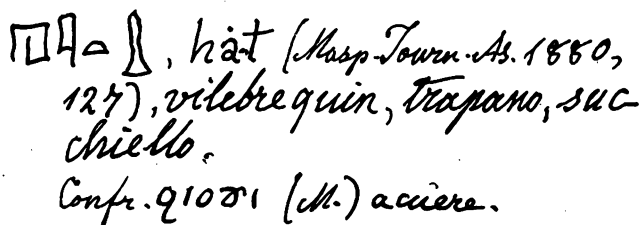 𓉔𓇋𓏏 , hȧt (Masp. Journ. As. 1880,
127), vilebrequin, trapano, suc
chiello.
Confr. (M.) acuere.